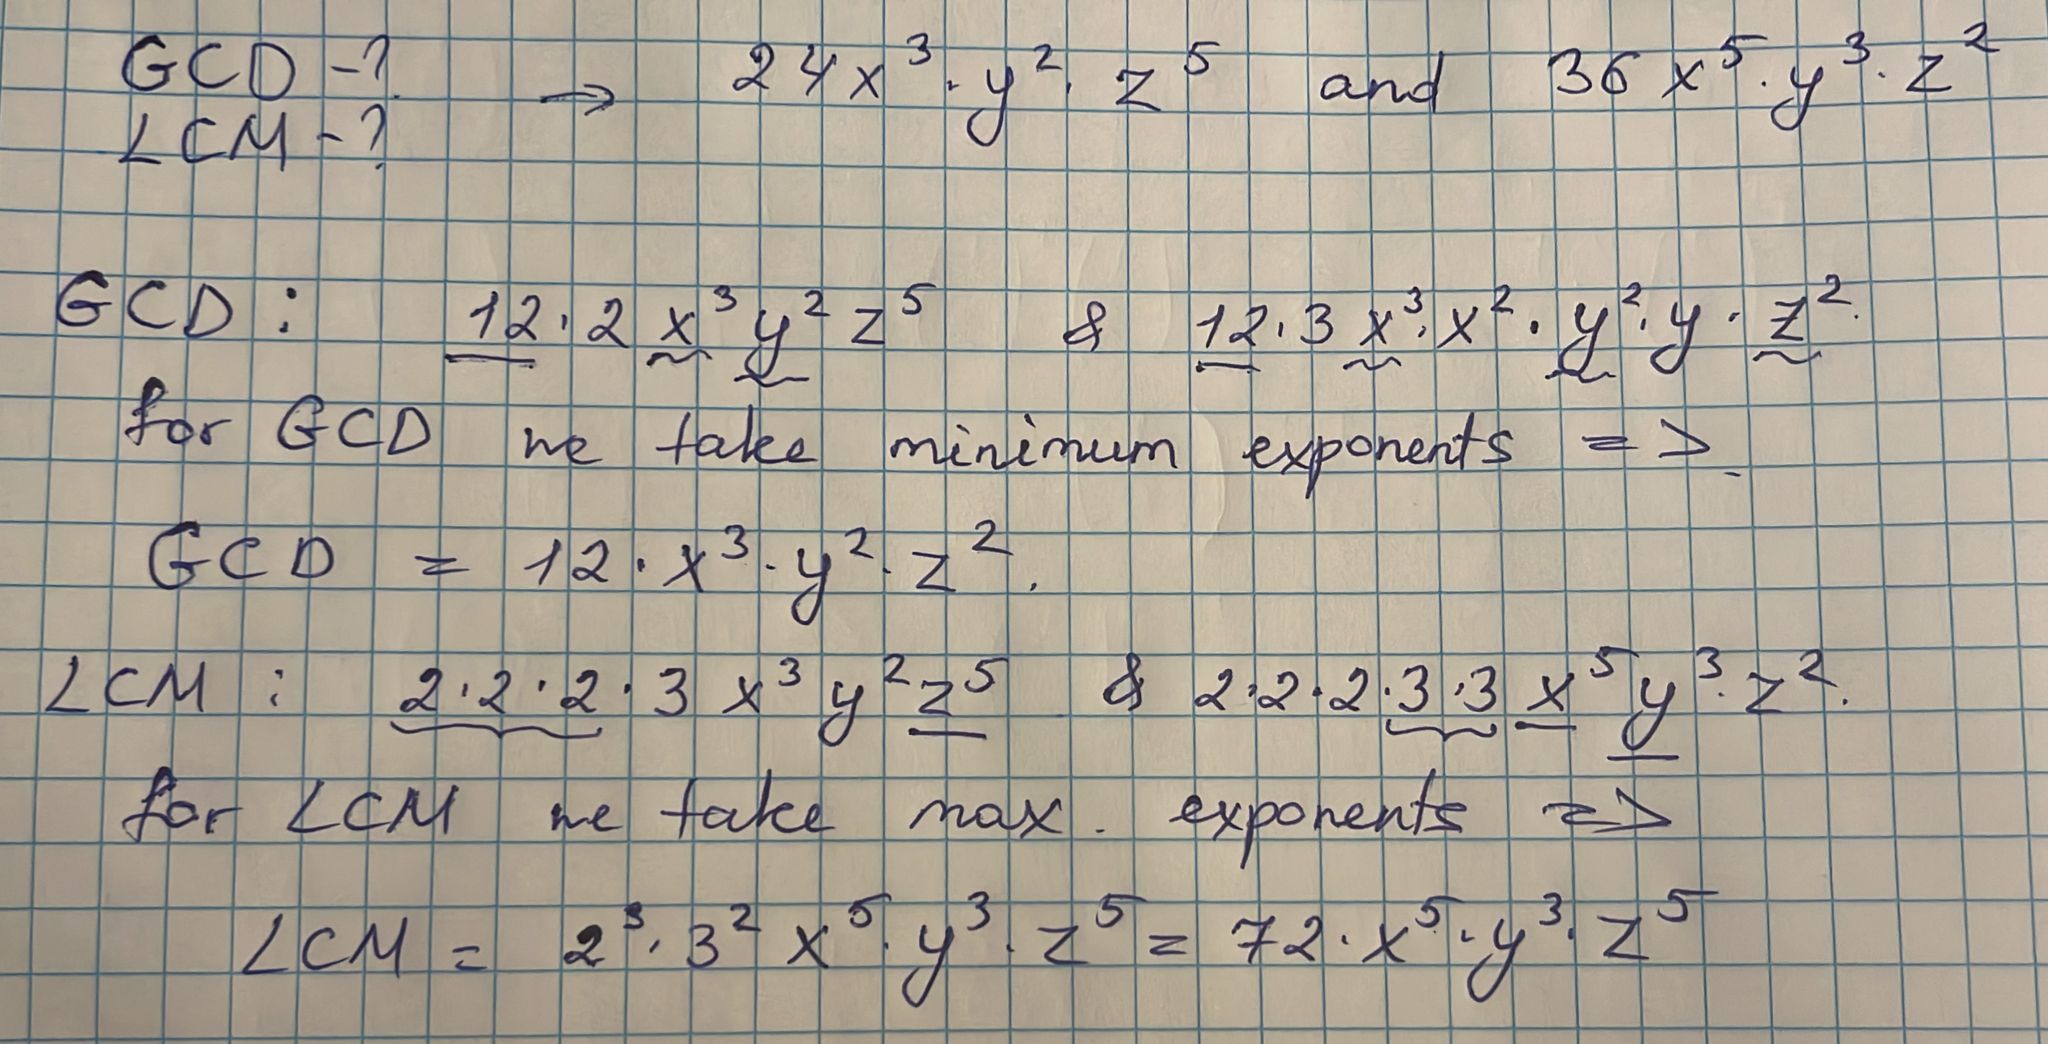 GCD - ? → 24x³·y²·z⁵ and 36x⁵·y³·z²
LCM - ?
GCD : 12·2 x³ y² z⁵ & 12·3 x³·x²·y²·y·z².
for GCD we take minimum exponents =>
GCD = 12·x³·y²·z².
LCM : 2·2·2·3 x³ y² z⁵ & 2·2·2·3·3 x⁵ y³·z².
for LCM we take max. exponents =>
LCM = 2³·3² x⁵·y³·z⁵ = 72·x⁵·y³·z⁵